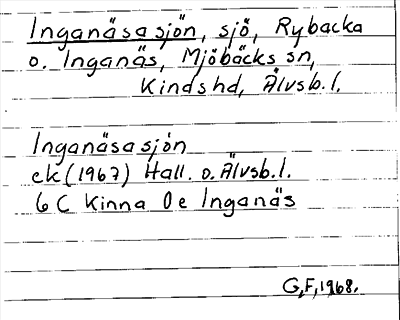 Inganäsasjön, sjö, Rybacka
o. Inganäs, Mjöbäcks sn,
Kinds hd, Älvsb. l.
Inganäsasjön
ek (1967) Hall. o. Älvsb. l.
6 C Kinna 0 e Inganäs
G, F, 1968.